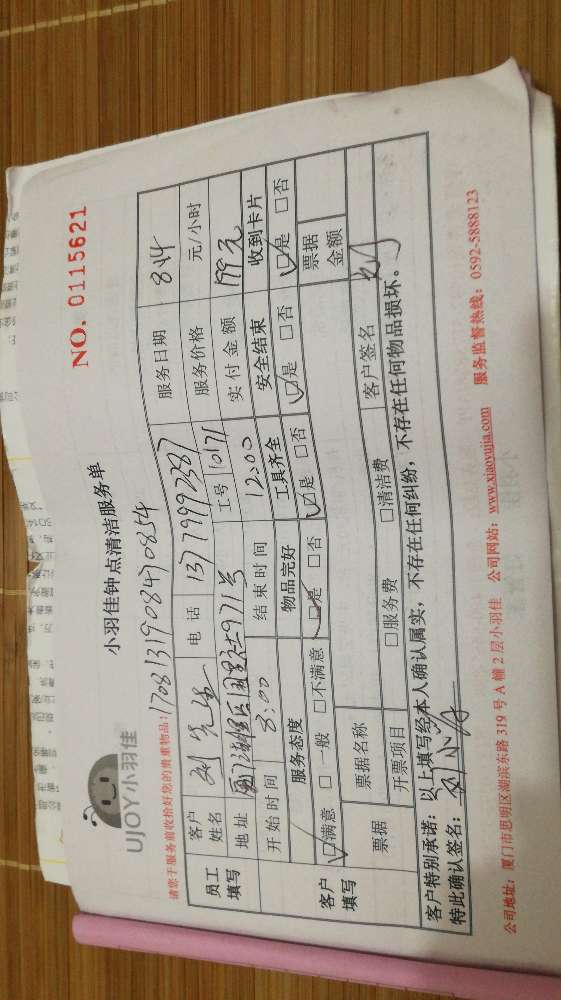 UJOY小羽佳
小羽佳钟点清洁服务单
NO. 0115621
请您于服务前收拾好您的贵重物品! 170813190847​0854
员工填写 客户姓名 刘先生 电话 13779992387 服务日期 8.14
地址 厦门 971号 工号 10171 服务价格 元/小时
开始时间 8:00 结束时间 12:00 实付金额 199元
客户填写 服务态度 物品完好 工具齐全 安全结束 收到卡片
☑满意 □一般 □不满意 ☑是 □否 ☑是 □否 ☑是 □否 ☑是 □否
票据 票据名称 票据金额
开票项目 □服务费 □清洁费 客户签名
客户特别承诺: 以上填写经本人确认属实, 不存在任何纠纷, 不存在任何物品损坏。
特此确认签名:
公司地址: 厦门市思明区湖滨东路 319 号 A 幢 2 层小羽佳 公司网站: www.xiaoyujia.com 服务监督热线: 0592-5888123